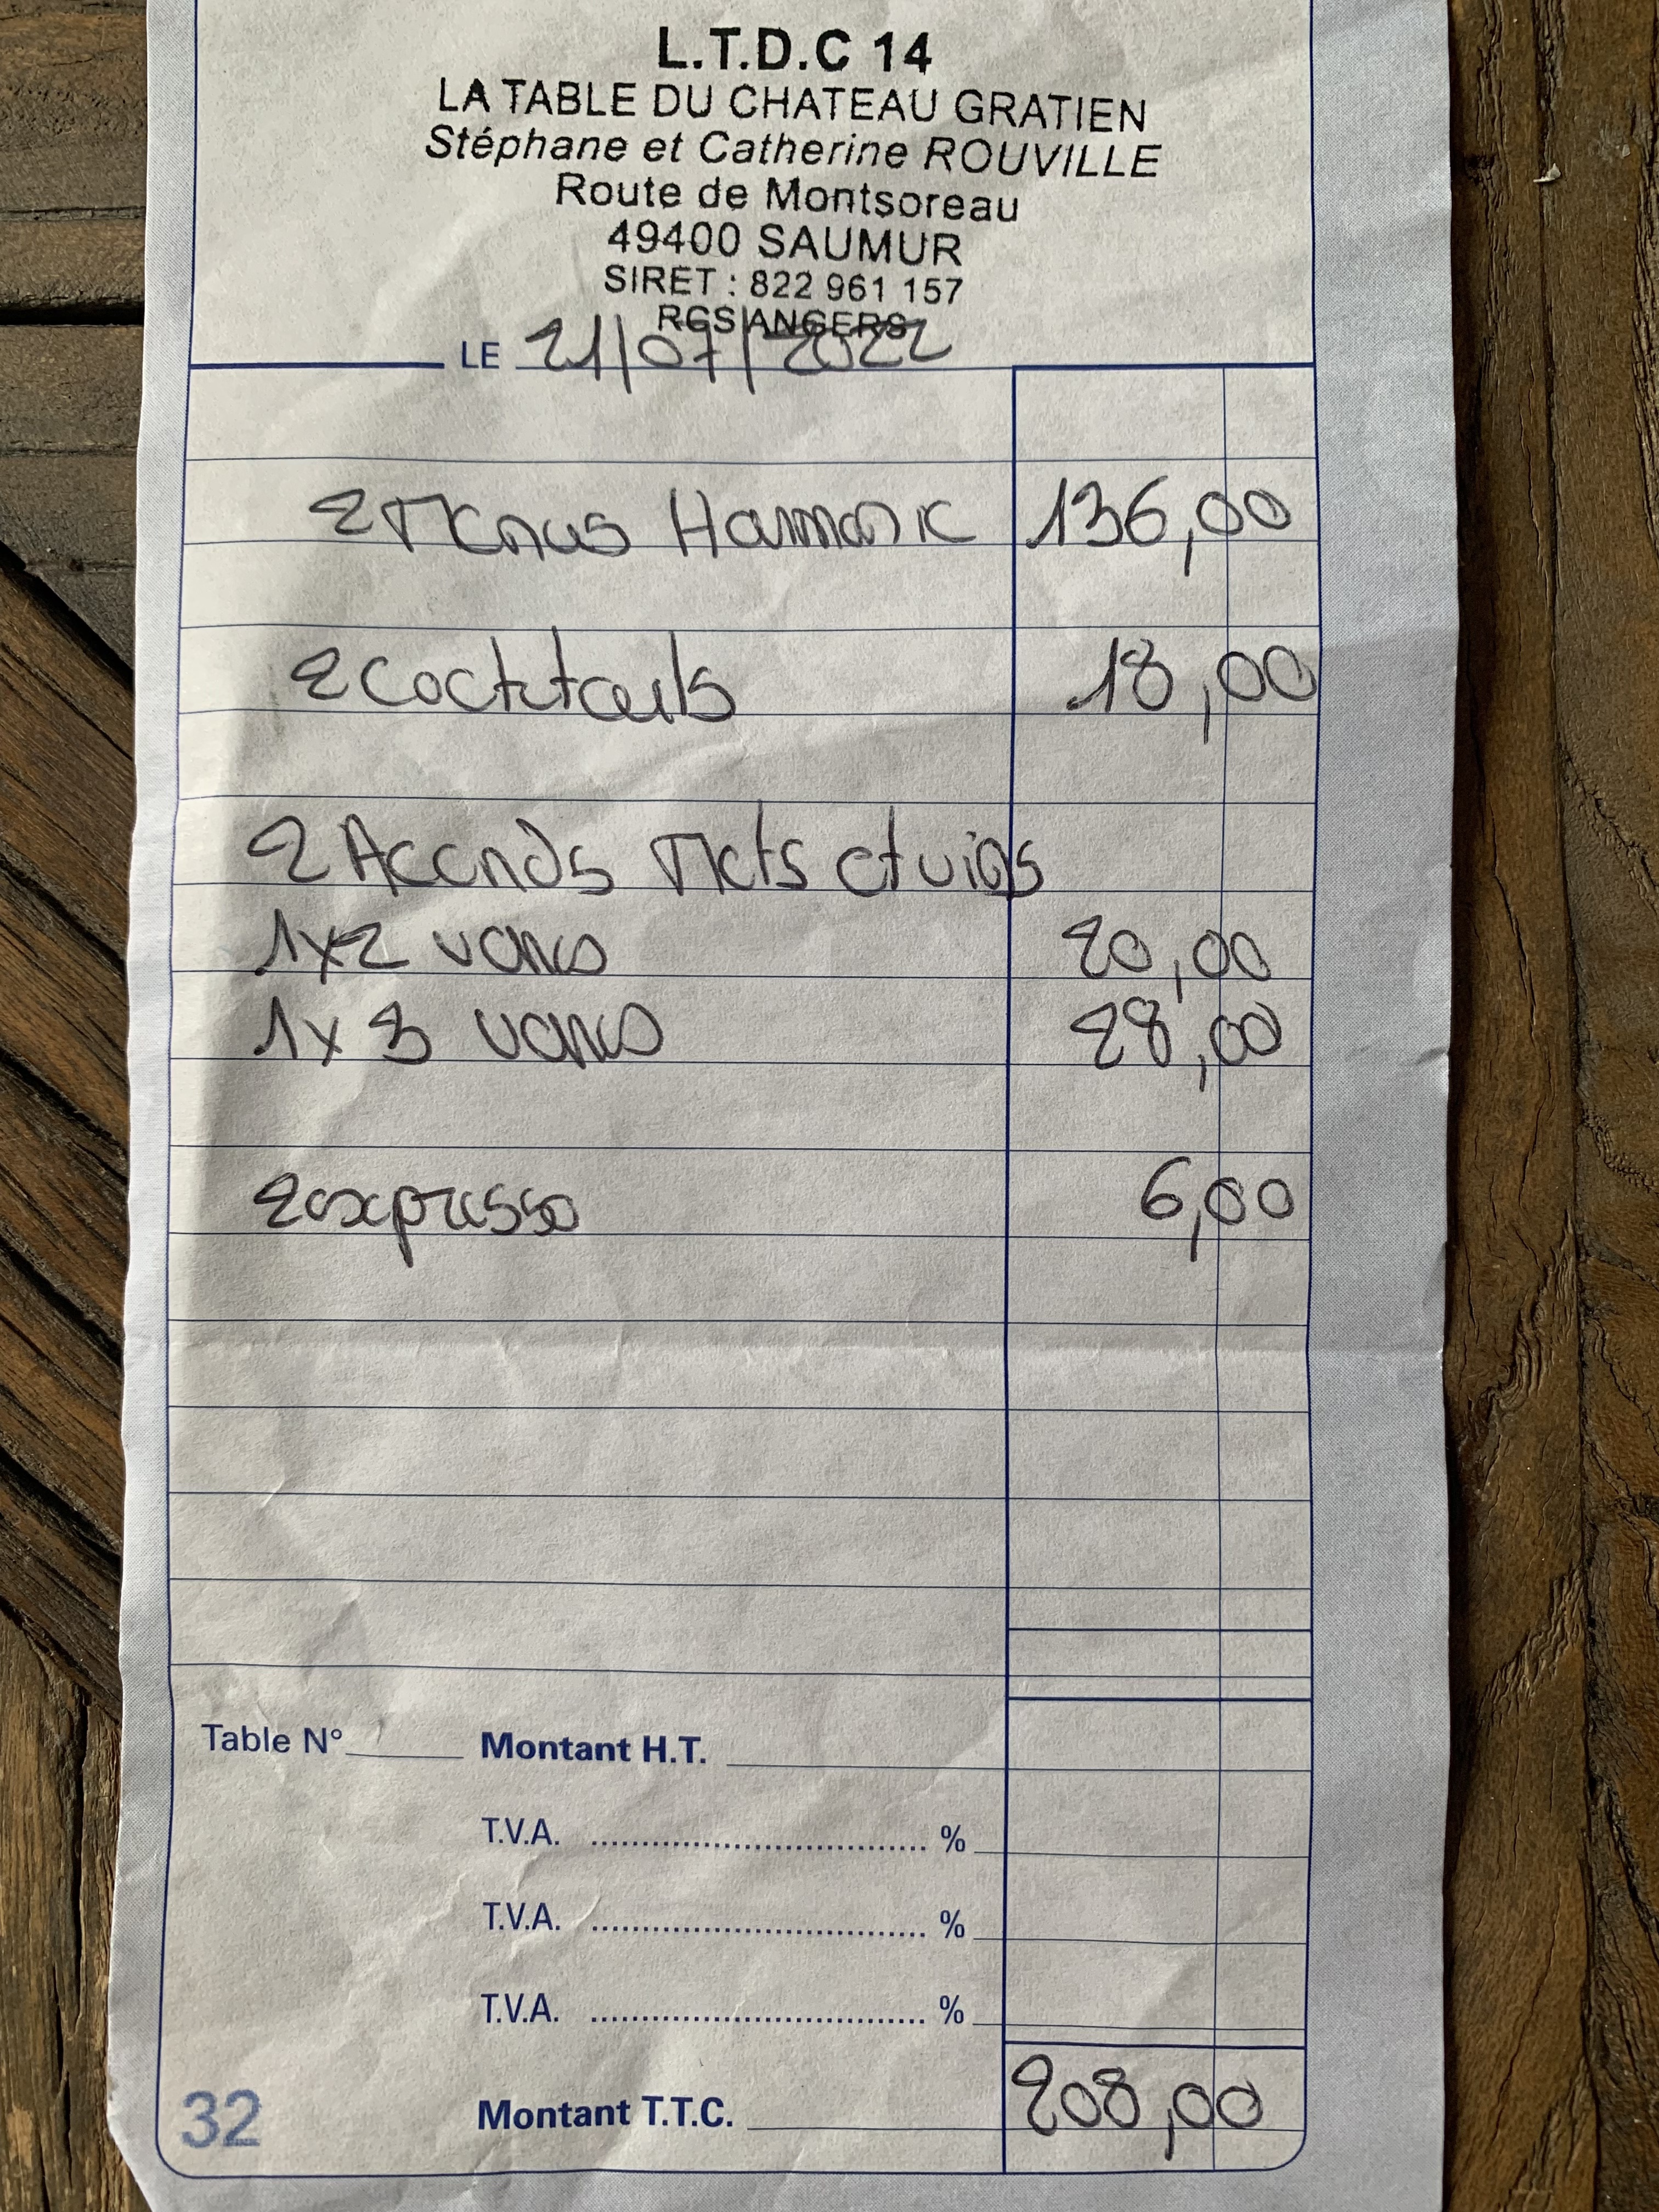 L.T.D.C 14
LA TABLE DU CHATEAU GRATIEN
Stéphane et Catherine ROUVILLE
Route de Montsoreau
49400 SAUMUR
SIRET : 822 961 157
RCS ANGERS
LE 21/07/2022
2 Menus Harmonie 136,00
2 cocktails 18,00
2 Accords Mets et vins
1x2 verres 20,00
1x3 verres 28,00
2 expresso 6,00
Table N° Montant H.T.
T.V.A. %
T.V.A. %
T.V.A. %
32 Montant T.T.C. 208,00